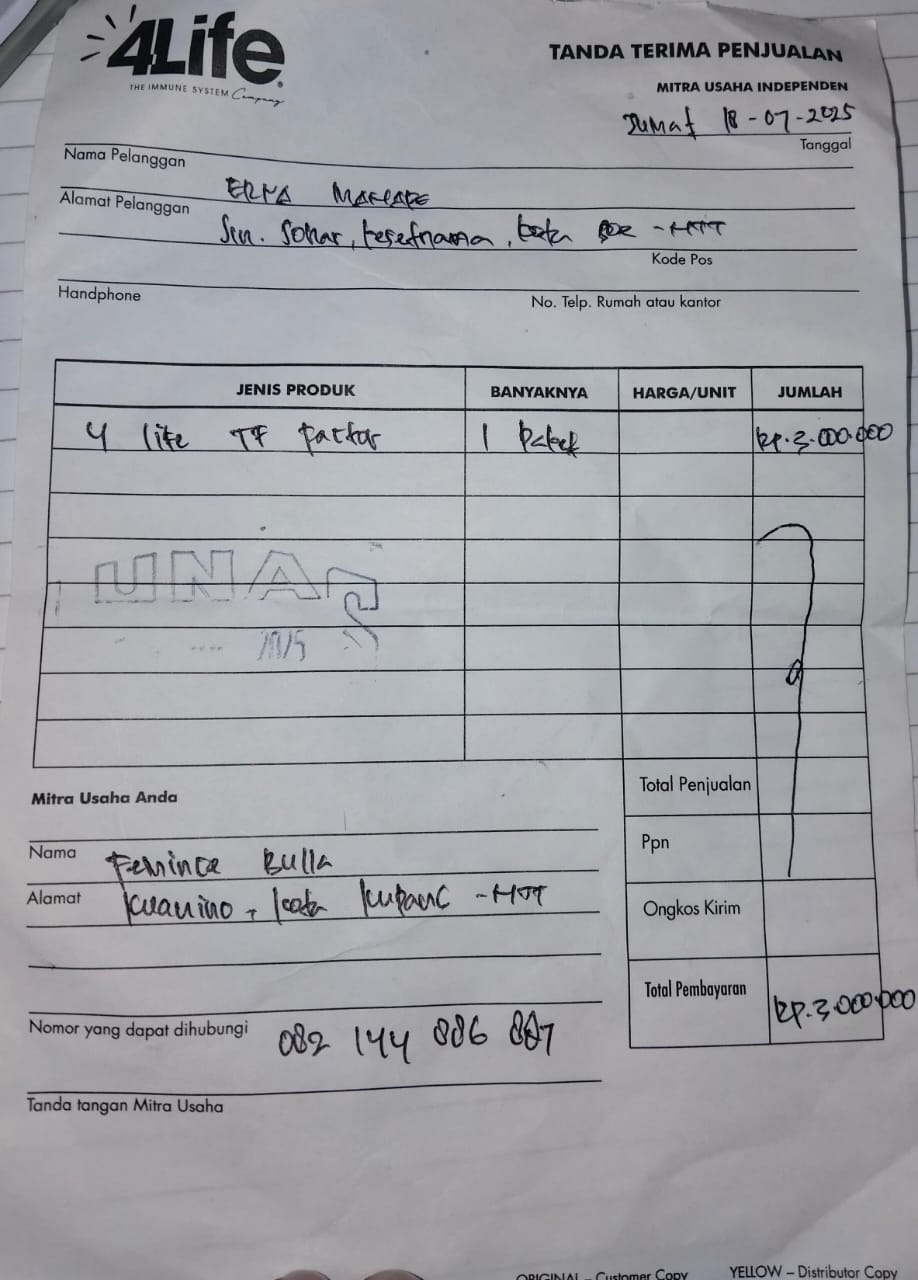 4Life
THE IMMUNE SYSTEM Company
TANDA TERIMA PENJUALAN
MITRA USAHA INDEPENDEN
Jumat 18-07-2025
Tanggal
Nama Pelanggan
ERNA
Alamat Pelanggan
Jln. Sohar, kota - NTT
Kode Pos
Handphone
No. Telp. Rumah atau kantor
JENIS PRODUK BANYAKNYA HARGA/UNIT JUMLAH
4 life TF factor 1 Paket Rp.3.000.000
LUNAS
2025
Mitra Usaha Anda
Total Penjualan
Nama Femince Bulla
Ppn
Alamat Kuanino, kota Kupang - NTT
Ongkos Kirim
Total Pembayaran Rp.3.000.000
Nomor yang dapat dihubungi 082 144 886 887
Tanda tangan Mitra Usaha
ORIGINAL – Customer Copy YELLOW – Distributor Copy